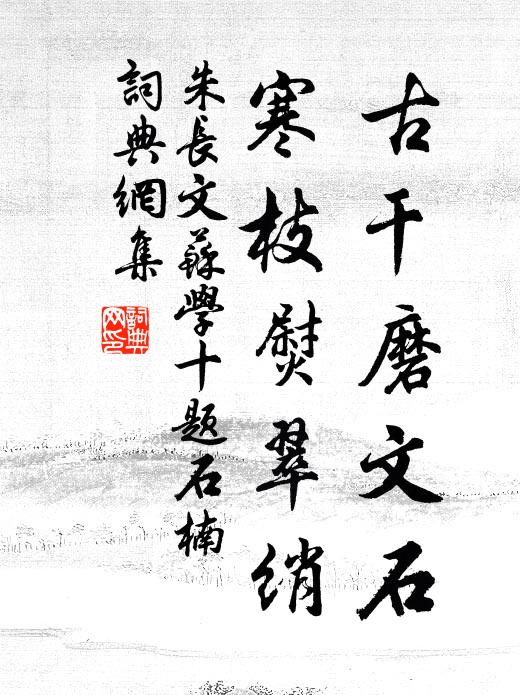 古干磨文石
寒枝熨翠綃
朱長文蘇學十題石楠
詞典網集
詞典網印